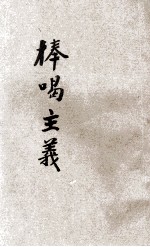 棒喝主義